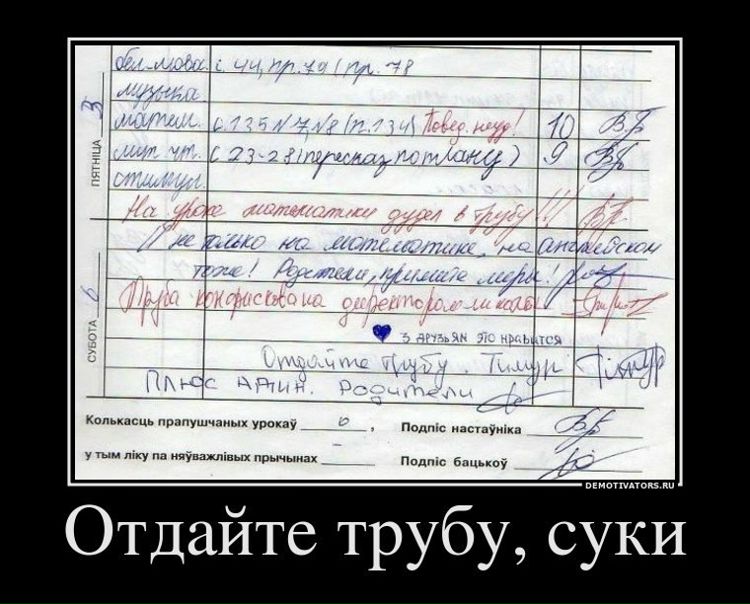 бел. мова с 44, пр. 79 (пр. 78
музыка
3
ПЯТНІЦА
матем. с. 135 N 7, N8 (п. 134) Повед. неуд! 10
лит. чт. с 23-28 (пересказ по плану) 9
стимул.
На уроке математики дудел в трубу!!!
И не только на математике, на английском
тоже! Родители, примите меры!
6
СУБОТА
Труба конфискована директором школы
3 друзьям это нравится
Отдайте трубу. Тимур
Плюс адин. Родители
Колькасць прапушчаных урокаў
Подпіс настаўніка
у тым ліку па няўважлівых прычынах
Подпіс бацькоў
DEMOTIVATORS.RU
Отдайте трубу, суки